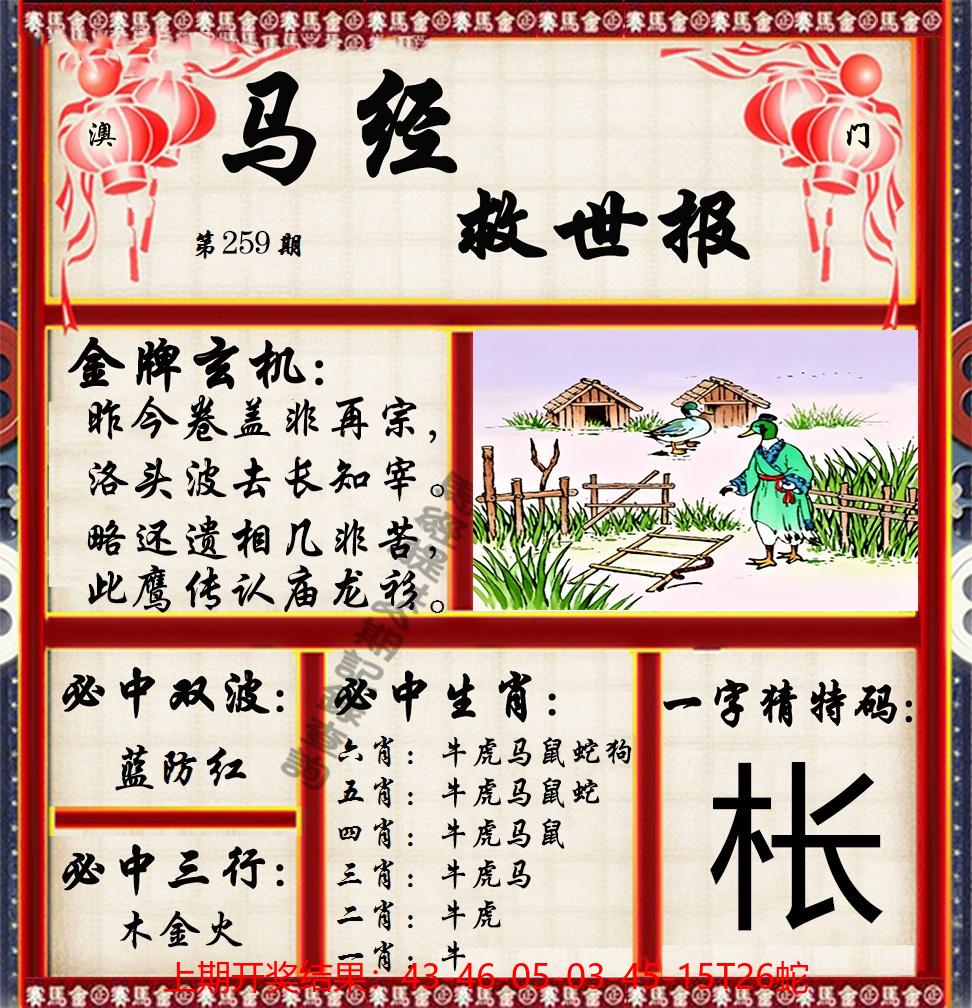 澳
门
马经
救世报
第259期
金牌玄机：
昨今卷盖非再宗，
洛头波去长知宰。
略还遗相几非苦，
此鹰传认庙龙移。
必中双波：
蓝防红
必中三行：
木金火
必中生肖：
六肖：牛虎马鼠蛇狗
五肖：牛虎马鼠蛇
四肖：牛虎马鼠
三肖：牛虎马
二肖：牛虎
一肖：牛
一字猜特码：
枨
上期开奖结果：43-46-05-03-45-15T26蛇